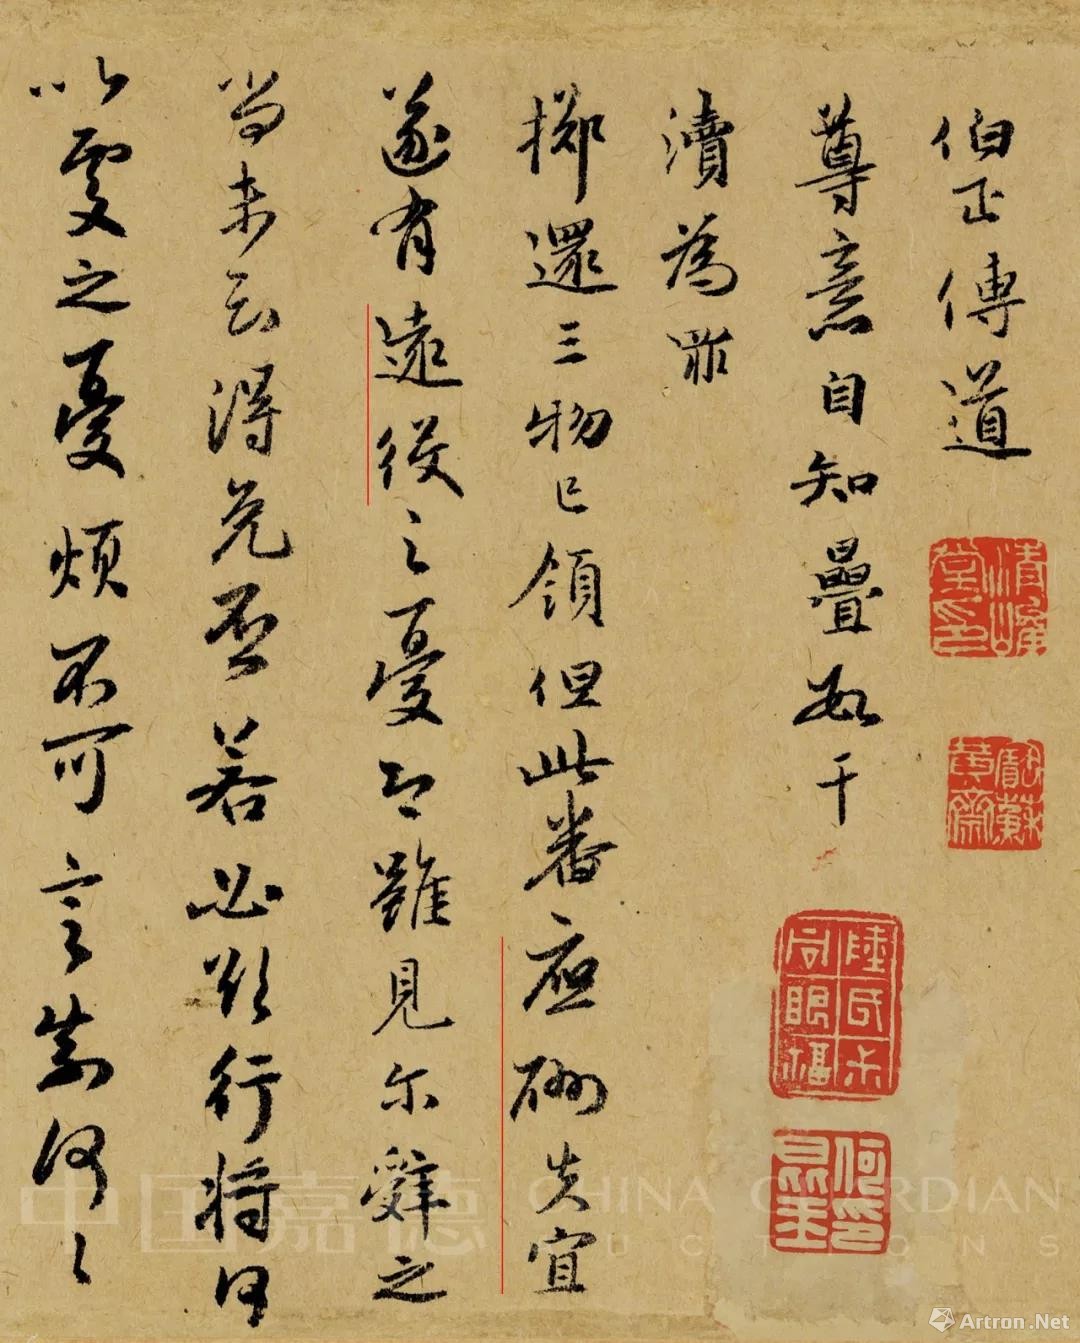 伯正傳道
尊意自知疊數千
瀆為罪
擲還三物已領但此番應酬失宜
遂有遠役之憂雖見尔辭之
尚未知得免否若必欲行將何
以處之憂煩不可言柰何〻
何印昆玉
中国嘉德 CHINA GUARDIAN
AUCTIONS
Artron.Net